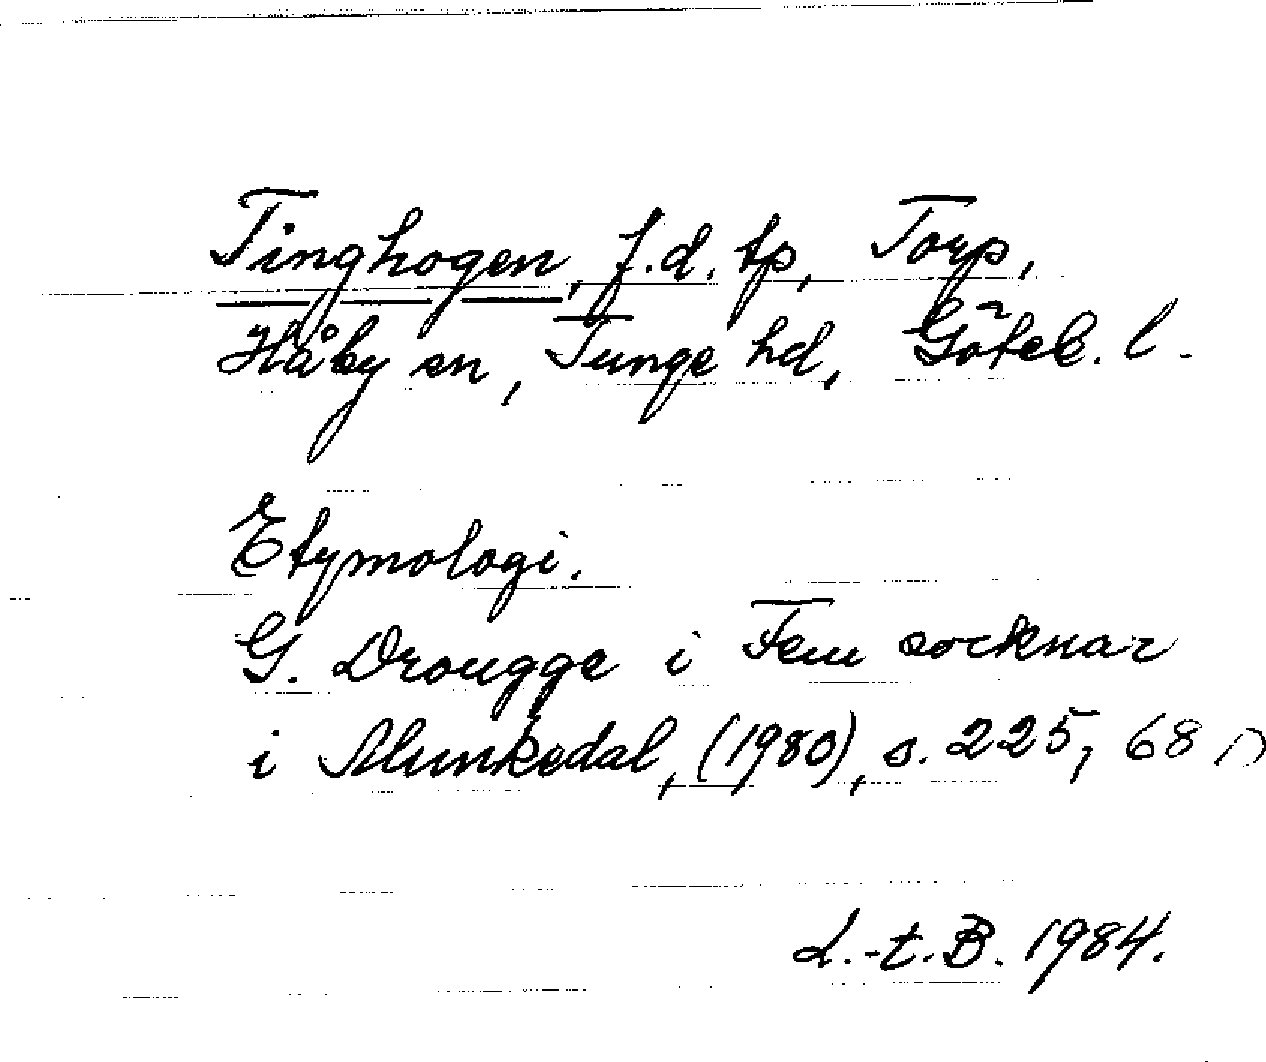 Tinghogen, f.d. tp, Torp,
Håby sn, Tunge hd, Göteb. l.
Etymologi.
G. Drougge i Fem socknar
i Munkedal, (1980), s. 225, 68
L.-t. B. 1984.